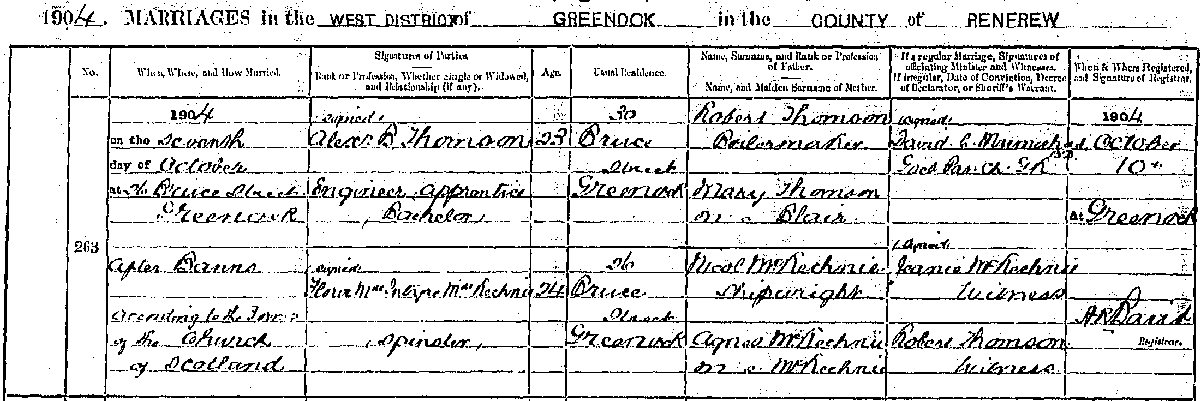 1904. MARRIAGES in the WEST DISTRICT of GREENOCK in the COUNTY of RENFREW
No.
When, Where, and How Married.
Signatures of Parties.
Rank or Profession, Whether Single or Widowed, and Relationship (if any).
Age.
Usual Residence.
Name, Surname, and Rank or Profession of Father.
Name, and Maiden Surname of Mother.
If a regular Marriage, Signatures of officiating Minister and Witnesses.
If irregular, Date of Conviction, Decree of Declarator, or Sheriff's Warrant.
When & Where Registered, and Signature of Registrar.
263
1904
on the Seventh
day of October
at Bruce Street
Greenock
After Banns
According to the Forms
of the Church
of Scotland
signed
Alexr B Thomson
Engineer, apprentice
Bachelor
signed
Flora MacIntyre MacKechnie
Spinster
23
24
30
Bruce
Street
Greenock
26
Bruce
Street
Greenock
Robert Thomson
Boilermaker
Mary Thomson
m.s. Blair
Nicol McKechnie
Shipwright
Agnes McKechnie
m.s. McKechnie
signed
David
signed
Jeanie McKechnie
Witness
Robert Thomson
Witness
1904
October
10th
at Greenock
Registrar.